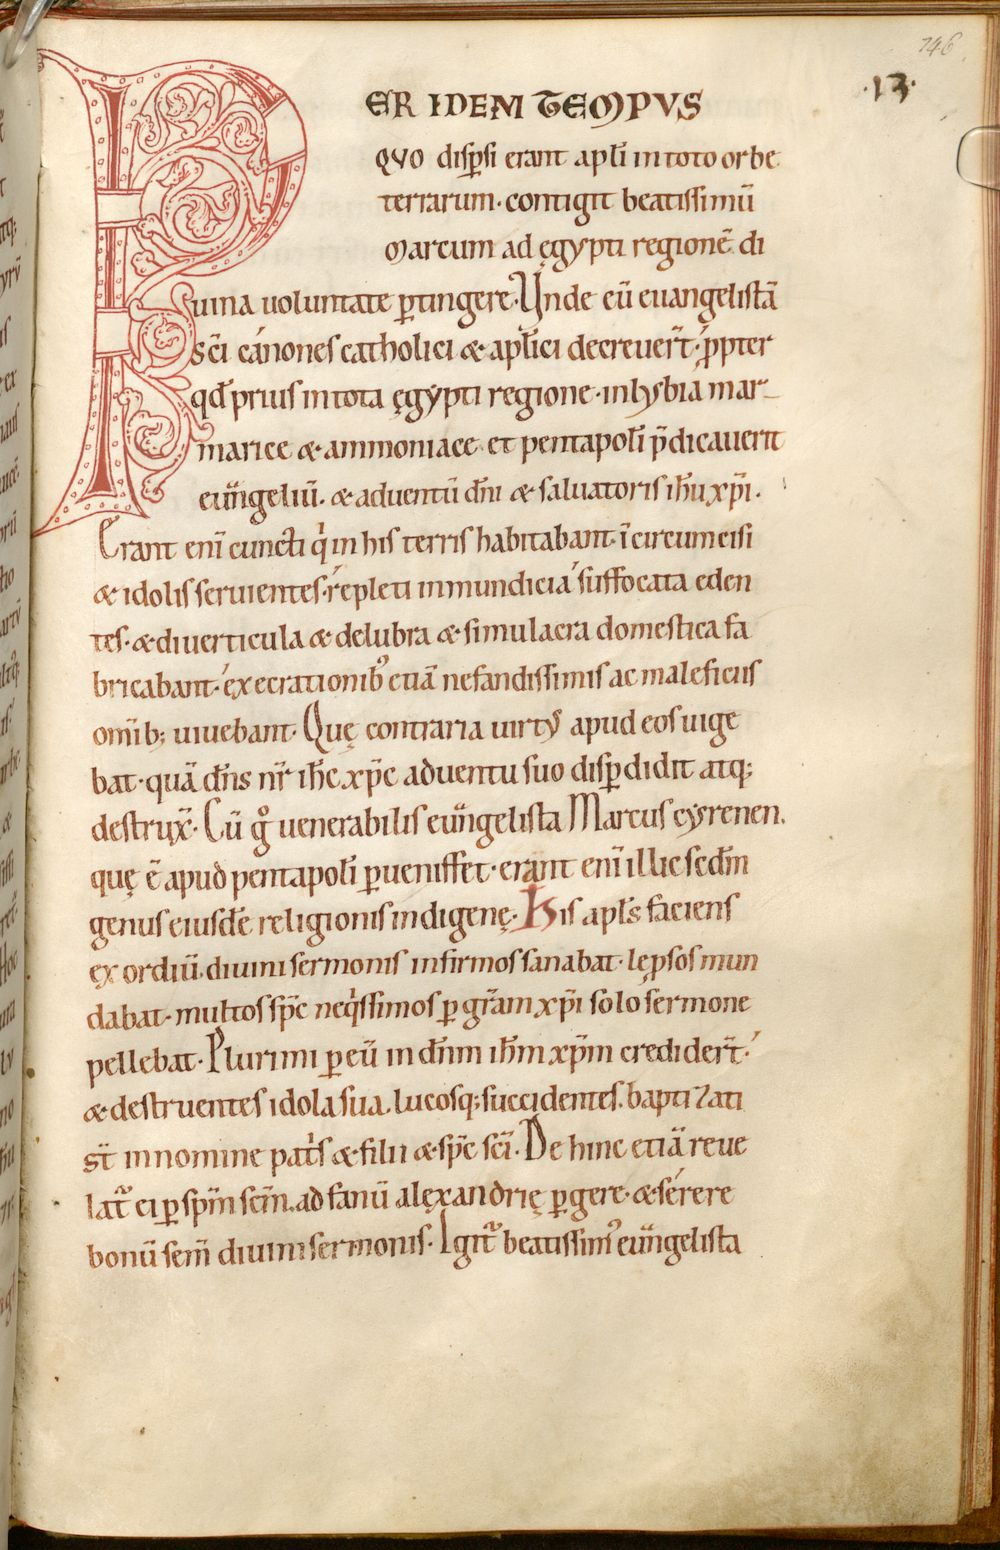 146
·13·
PER IDEM TEMPVS
QVO dispsi erant apli in toto orbe
terrarum· contigit beatissimū
Marcum ad ęgypti regionē di
uina uoluntate ptingere· Unde eū euangelistā
sc̄i cánones catholici & aplici decreuer̄t· ppter
qđ prius in tota ęgypti regione· in lybia mar-
marice & ammoniace et pentapoli p̄dicauerit
eūngeliū· & aduentū dn̄i & saluatoris ih̄u xp̄i·
Erant eni cuncti qi in his terris habitabant· īcircumcisi
& idolis seruientes· répleti inmundicia suffocata eden
tes· & diuerticula & delubra & simulacra domestica fa
bricabant· éxecrationib; etiā nefandissimis ac maleficiis
omib; uiuebant· Quę contraria uirty apud eos uige
bat· quā dn̄s nr̄ ih̄c xp̄c aduentu suo dispdidit atq;
destrux̄· Cū go uenerabilis eūngelista Marcus cyrenen·
quę ē apud pentapoli puenisset· erant eni illic scdm
genus eiusdē religionis indigenę· His apl̄s faciens
exordiū diuini sermonis infirmos sanabat· lęprosos mun
dabat· multos sp̄c neqissimos p gr̄am xp̄i solo sermone
pellebat· Plurimi p eū in dn̄m ih̄m xp̄m credider̄t·
& destruentes idola sua, lucosq; succidentes, baptizati
st̄ in nomine patis & filii & sp̄c sc̄i· De hinc etiā reue
lat̄ ei p spm̄ scm̄ ad fanū alęxandrię pgere· & sérere
bonū sem̄ diuini sermonis· Igit̄ beatissim' eūngelista